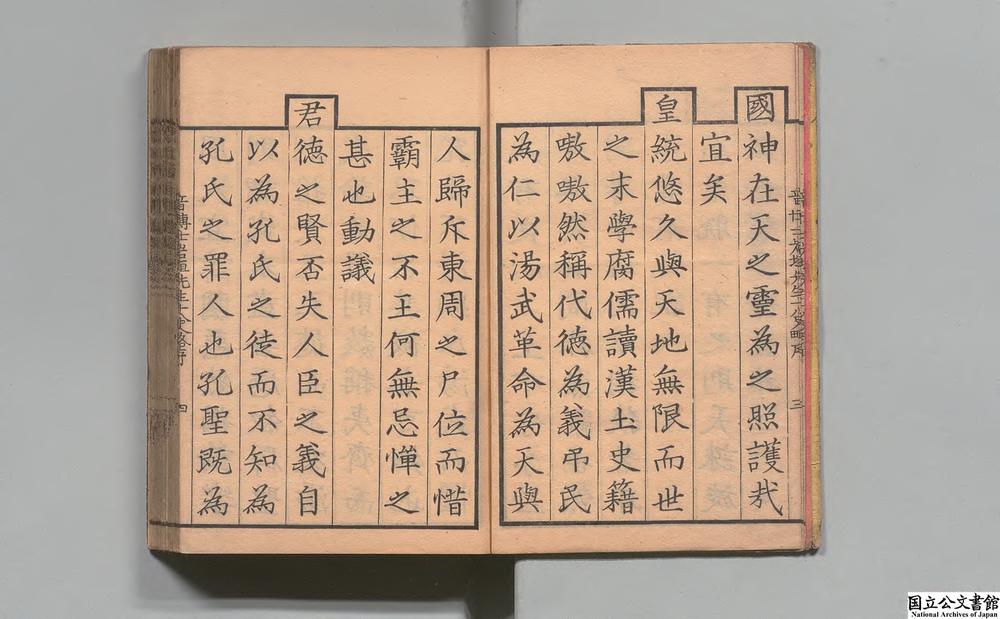 國神在天之靈為之照護哉
宜矣
皇統悠久與天地無限而世
之末學腐儒讀漢土史籍
嗷嗷然稱代德為義弔民
為仁以湯武革命為天與
人歸斥東周之尸位而惜
霸主之不王何無忌憚之
甚也動議
君德之賢否失人臣之義自
以為孔氏之徒而不知為
孔氏之罪人也孔聖既為
三
四
国立公文書館
National Archives of Japan